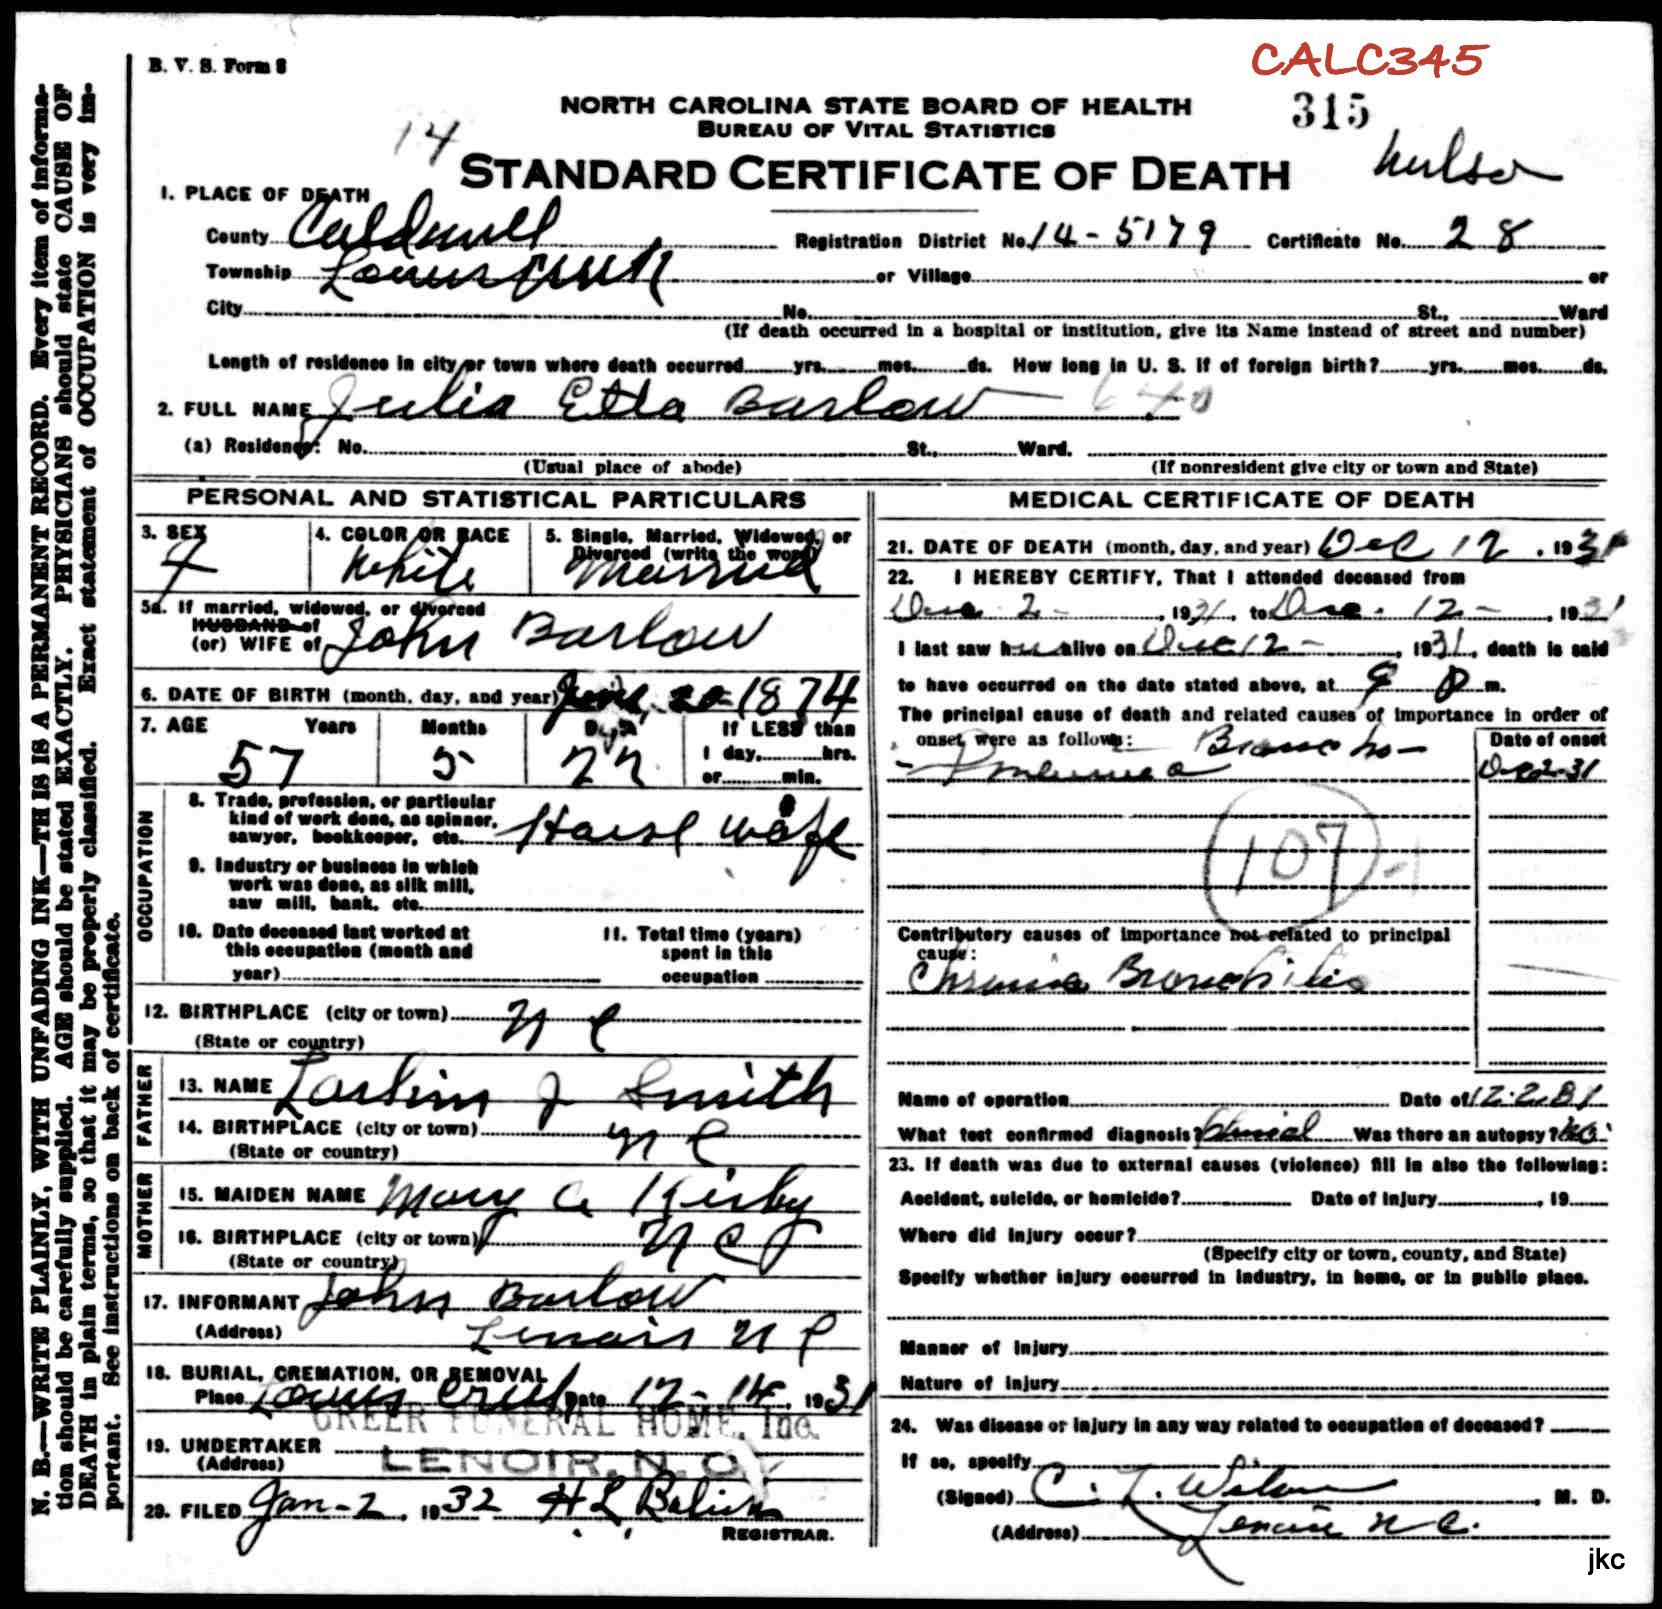 CALC345
B. V. S. Form 8
NORTH CAROLINA STATE BOARD OF HEALTH
315
BUREAU OF VITAL STATISTICS
14
STANDARD CERTIFICATE OF DEATH
1. PLACE OF DEATH
County Caldwell Registration District No. 14-5179 Certificate No. 28
Township or Village or
City No. St., Ward
(If death occurred in a hospital or institution, give its Name instead of street and number)
Length of residence in city or town where death occurred yrs. mos. ds. How long in U. S. if of foreign birth? yrs. mos. ds.
2. FULL NAME Julia Etta Barlow
(a) Residence: No. St., Ward.
(Usual place of abode) (If nonresident give city or town and State)
PERSONAL AND STATISTICAL PARTICULARS
3. SEX 4. COLOR OR RACE 5. Single, Married, Widowed, or
Divorced (write the word)
F White Married
5a. If married, widowed, or divorced
HUSBAND of
(or) WIFE of John Barlow
6. DATE OF BIRTH (month, day, and year) June 20 1874
7. AGE Years Months Days If LESS than
1 day, hrs.
or min.
57 5 22
OCCUPATION
8. Trade, profession, or particular
kind of work done, as spinner,
sawyer, bookkeeper, etc. House wife
9. Industry or business in which
work was done, as silk mill,
saw mill, bank, etc.
10. Date deceased last worked at
this occupation (month and
year)
11. Total time (years)
spent in this
occupation
12. BIRTHPLACE (city or town) N C
(State or country)
FATHER
13. NAME Larkin J Smith
14. BIRTHPLACE (city or town) N C
(State or country)
MOTHER
15. MAIDEN NAME Mary A Kirby
16. BIRTHPLACE (city or town) N C
(State or country)
17. INFORMANT John Barlow
(Address) Lenoir N C
18. BURIAL, CREMATION, OR REMOVAL
Place Date 12-14, 1931
GREER FUNERAL HOME, Inc.
19. UNDERTAKER
(Address) LENOIR, N. C.
20. FILED Jan-2, 1932 H L
REGISTRAR.
MEDICAL CERTIFICATE OF DEATH
21. DATE OF DEATH (month, day, and year) Dec 12, 1931
22. I HEREBY CERTIFY, That I attended deceased from
Dec. 2-, 1931, to Dec. 12-, 1931
I last saw her alive on Dec 12-, 1931, death is said
to have occurred on the date stated above, at 9 P m.
The principal cause of death and related causes of importance in order of
onset were as follows: Broncho-
Pneumonia
Date of onset
Dec 2-31
107
Contributory causes of importance not related to principal
cause:
Chronic Bronchitis
Name of operation Date of 12-2-31
What test confirmed diagnosis? Clinical Was there an autopsy? No
23. If death was due to external causes (violence) fill in also the following:
Accident, suicide, or homicide? Date of injury , 19
Where did injury occur?
(Specify city or town, county, and State)
Specify whether injury occurred in industry, in home, or in public place.
Manner of injury
Nature of injury
24. Was disease or injury in any way related to occupation of deceased?
If so, specify
(Signed) C. L. Wilson, M. D.
(Address) Lenoir N C.
jkc
N. B.—WRITE PLAINLY, WITH UNFADING INK—THIS IS A PERMANENT RECORD. Every item of informa-
tion should be carefully supplied. AGE should be stated EXACTLY. PHYSICIANS should state CAUSE OF
DEATH in plain terms, so that it may be properly classified. Exact statement of OCCUPATION is very im-
portant. See instructions on back of certificate.